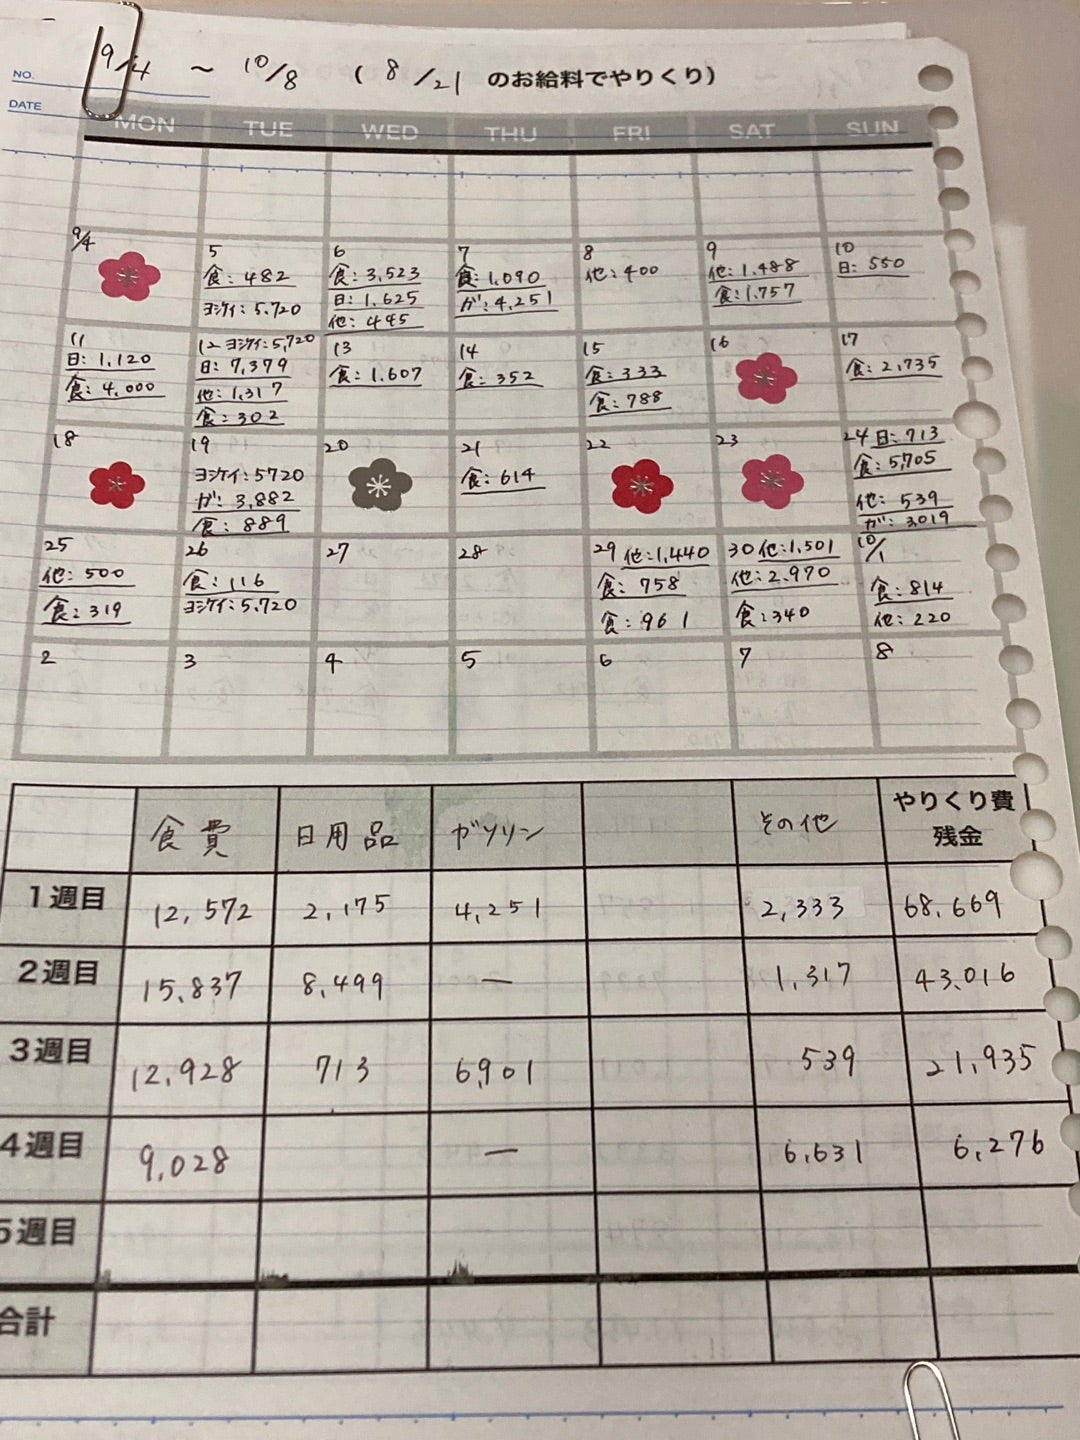 9/4 ～ 10/8 ( 8/21 のお給料でやりくり)
NO.
DATE
MON TUE WED THU FRI SAT SUN
9/4
5
食: 482
ヨシケイ: 5.720
6
食: 3,523
日: 1,625
他: 445
7
食: 1,090
ガ: 4,251
8
他: 400
9
他: 1,488
食: 1,757
10
日: 550
11
日: 1,120
食: 4,000
12 ヨシケイ: 5,720
日: 7,379
他: 1,317
食: 302
13
食: 1.607
14
食: 352
15
食: 333
食: 788
16
17
食: 2,735
18
19
ヨシケイ: 5720
ガ: 3,882
食: 889
20
21
食: 614
22
23
24 日: 713
食: 5,705
他: 539
ガ: 3019
25
他: 500
食: 319
26
食: 116
ヨシケイ: 5,720
27
28
29 他: 1,440
食: 758
食: 961
30 他: 1,501
他: 2.970
食: 340
10/1
食: 814
他: 220
2 3 4 5 6 7 8
食費 日用品 ガソリン その他 やりくり費
残金
1週目 12,572 2,175 4,251 2,333 68,669
2週目 15,837 8,499 — 1,317 43,016
3週目 12,928 713 6,901 539 21,935
4週目 9,028 — 6,631 6,276
5週目
合計